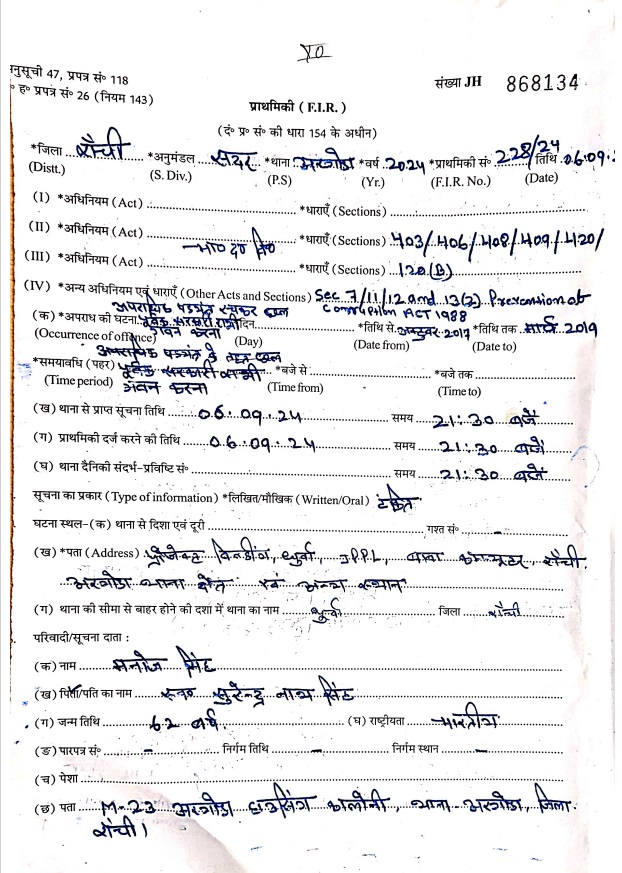 नुसूची 47, प्रपत्र सं० 118
० ह० प्रपत्र सं० 26 (नियम 143)
संख्या JH 868134
प्राथमिकी (F.I.R.)
(दं० प्र० सं० की धारा 154 के अधीन)
*जिला राँची *अनुमंडल सदर *थाना अरगोड़ा *वर्ष 2024 *प्राथमिकी सं० 228/24 तिथि 06.09.
(Distt.) (S. Div.) (P.S) (Yr.) (F.I.R. No.) (Date)
(I) *अधिनियम (Act) *धाराएँ (Sections)
(II) *अधिनियम (Act) *धाराएँ (Sections) 403/406/408/409/420/
भा० द० वि०
(III) *अधिनियम (Act) *धाराएँ (Sections) 120(B)
(IV) *अन्य अधिनियम एवं धाराएँ (Other Acts and Sections) Sec 7/11/12 and 13(2) Prevension of
Corruption ACT 1988
अपराधिक षडयंत्र रचकर छल
(क) *अपराध की घटना पूर्वक सरकारी राशी दिन *तिथि से अक्टुबर 2017 *तिथि तक मार्च 2019
गवन करना
(Occurrence of offence) (Day) (Date from) (Date to)
अपराधिक षडयंत्र के तहत छल
*समयावधि (पहर) पूर्वक सरकारी राशी *बजे से *बजे तक
(Time period) गवन करना (Time from) (Time to)
(ख) थाना से प्राप्त सूचना तिथि 06.09.24 समय 21:30 बजे
(ग) प्राथमिकी दर्ज करने की तिथि 06.09.24 समय 21:30 बजे
(घ) थाना दैनिकी संदर्भ-प्रविष्टि सं० समय 21:30 बजे
सूचना का प्रकार (Type of information) *लिखित/मौखिक (Written/Oral) टंकित
घटना स्थल-(क) थाना से दिशा एवं दूरी गश्त सं० -
(ख) *पता (Address) प्रोजेक्ट बिल्डींग, धुर्वा, JPPL, बाबा कम्प्यूटर राँची
अरगोड़ा थाना क्षेत्र एवं अन्य स्थान
(ग) थाना की सीमा से बाहर होने की दशा में थाना का नाम धुर्वा जिला राँची
परिवादी/सूचना दाता :
(क) नाम मनोज सिंह
(ख) पिता/पति का नाम स्व० सुरेन्द्र नाथ सिंह
(ग) जन्म तिथि 62 वर्ष (घ) राष्ट्रीयता भारतीय
(ङ) पारपत्र सं० - निर्गम तिथि - निर्गम स्थान -
(च) पेशा
(छ) पता M-23 अरगोड़ा हाउसिंग कालोनी, थाना-अरगोड़ा, जिला-
राँची।